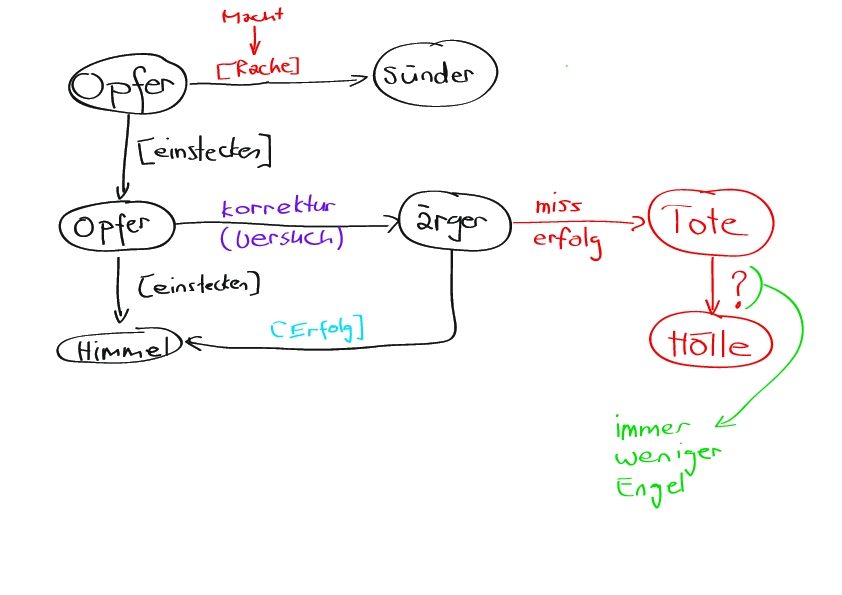 Macht
[Rache]
Opfer
Sünder
[einstecken]
Opfer
korrektur
(Versuch)
ärger
miss
erfolg
Tote
[einstecken]
?
Himmel
[Erfolg]
Hölle
immer
weniger
Engel